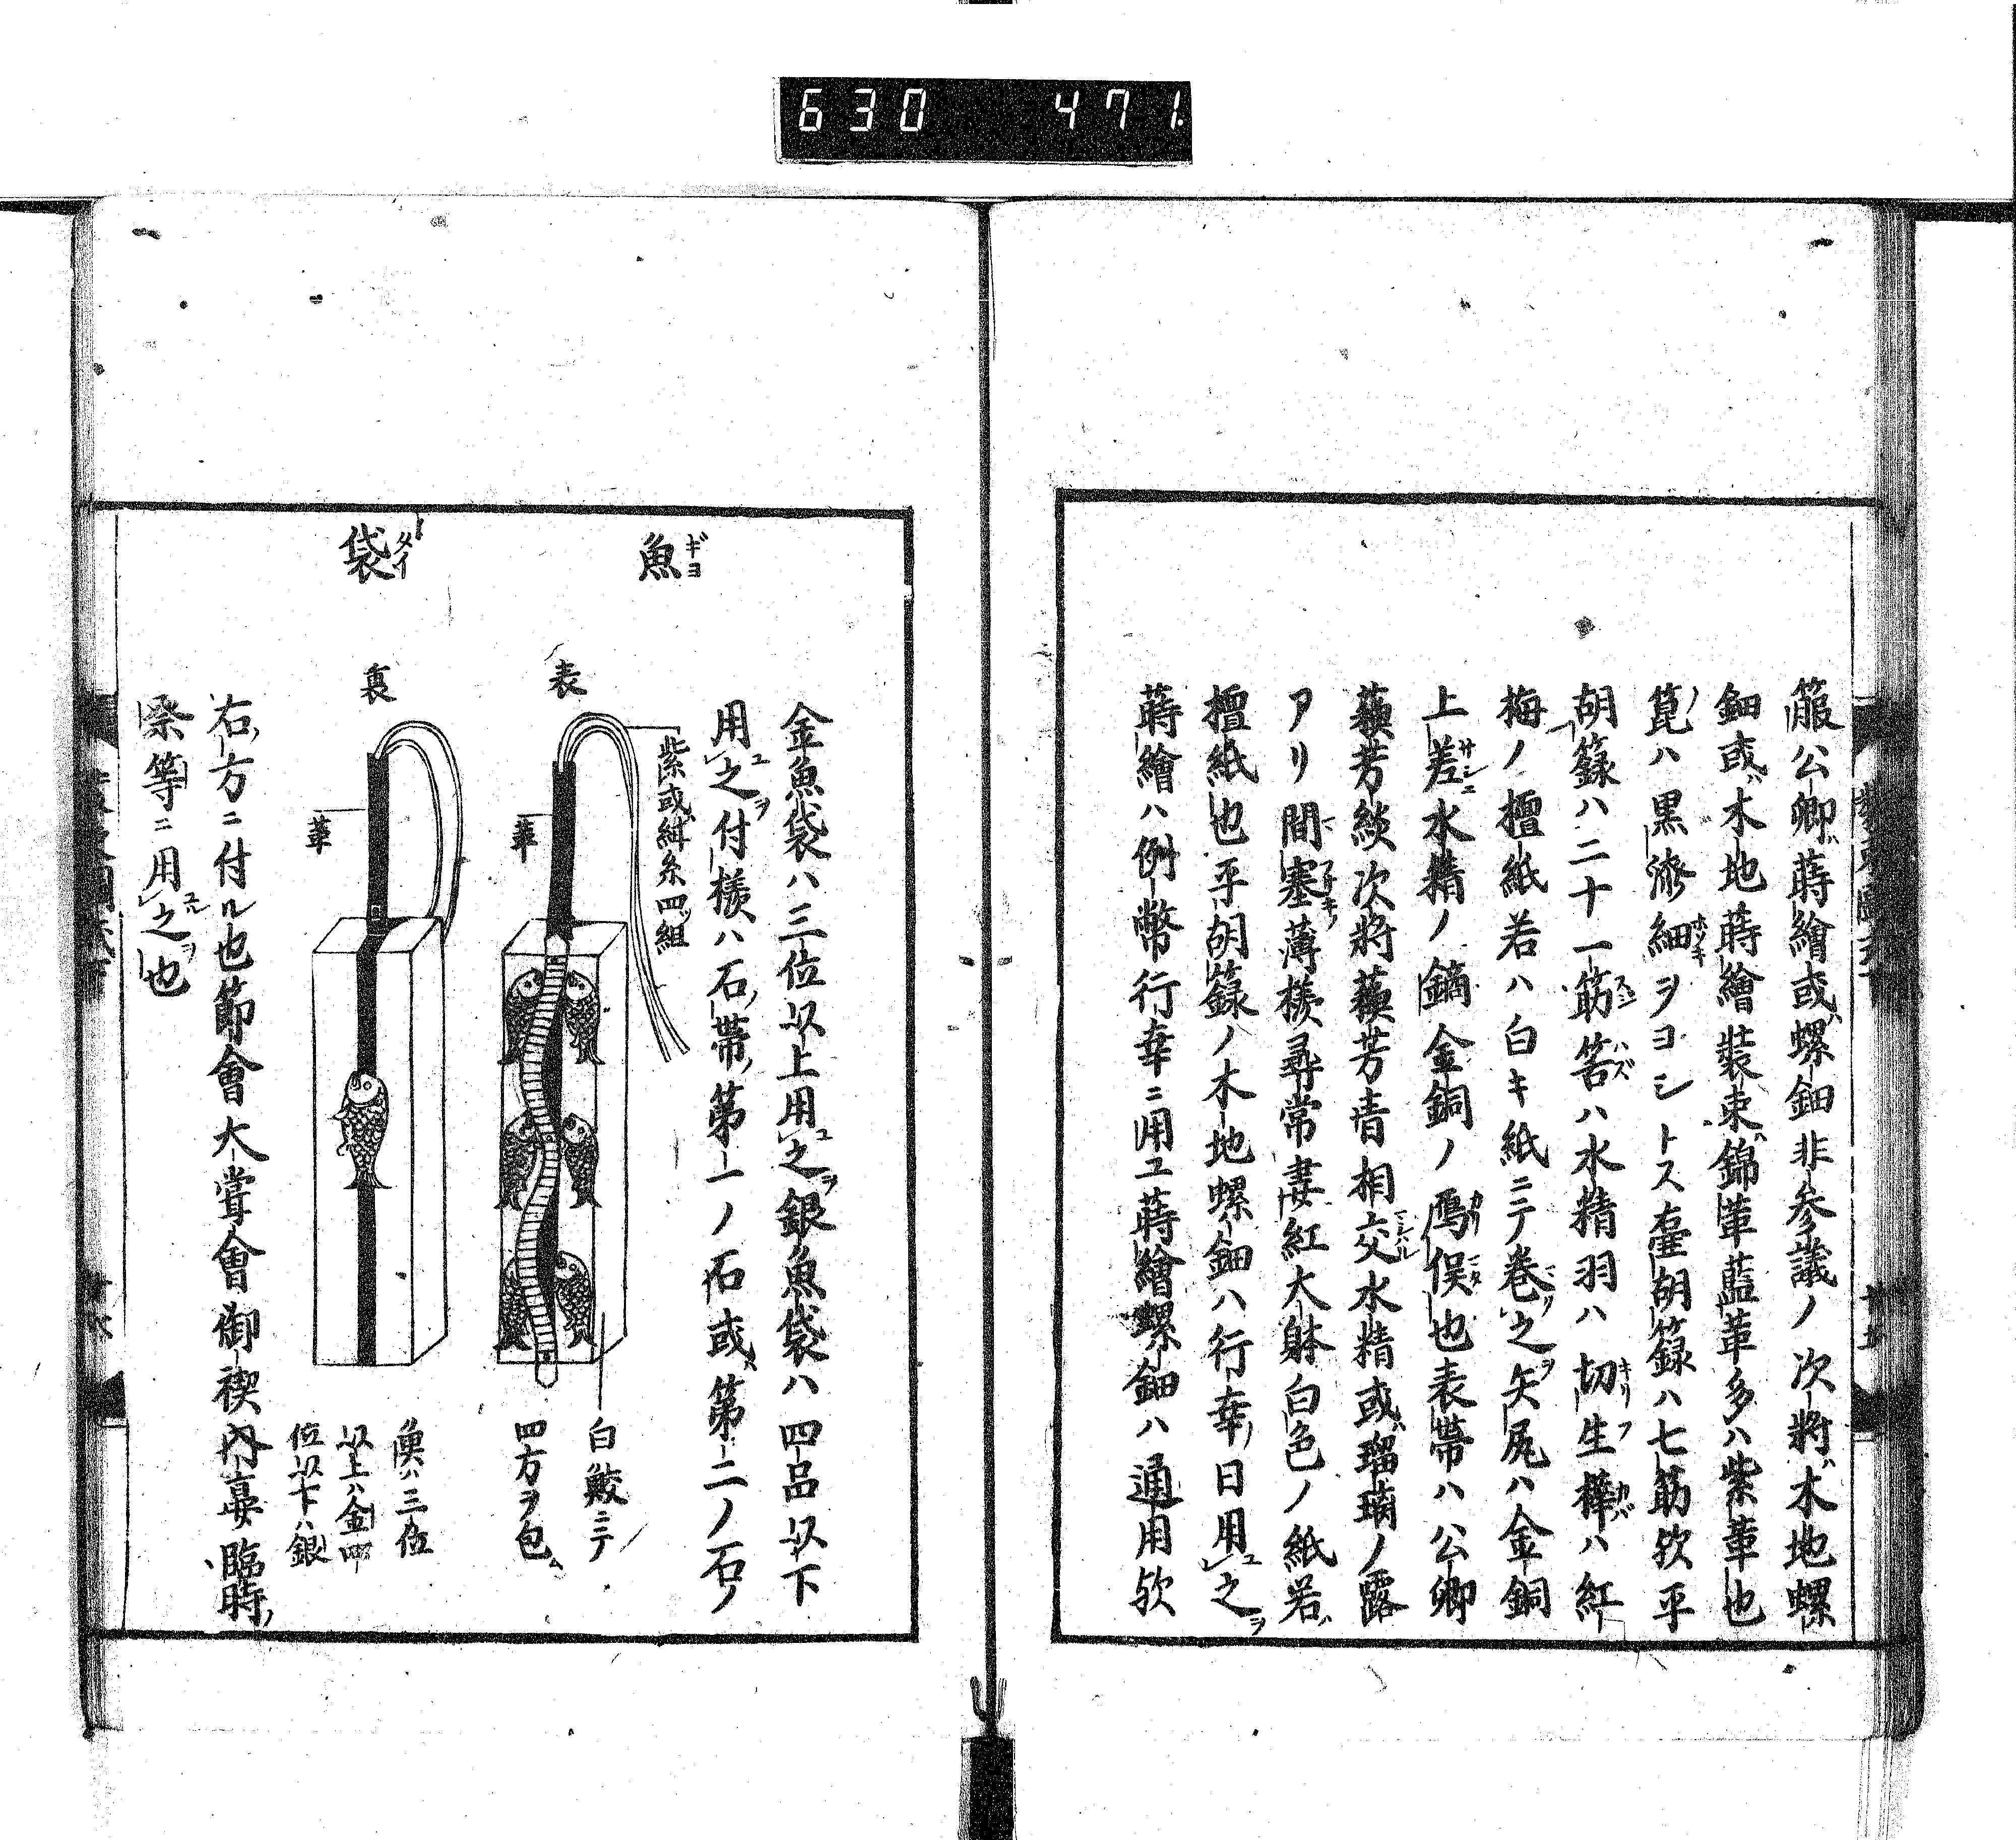 630 471.
箙公卿ハ蒔繪或ハ螺鈿非参議ノ次將ハ木地螺
鈿或ハ木地蒔繪装束ハ錦革藍革多ハ紫革也
箟ハ黒漆細ヲヨシトス壷胡籙ハ七筋欤平
胡籙ハ二十一筋筈ハ水精羽ハ切生樺ハ紅
梅ノ檀紙若ハ白キ紙ニテ巻之矢尻ハ金銅
上差水精ノ鏑金銅ノ鴈俣也表帯ハ公卿
蘓芳緂次將蘓芳青相交水精或ハ瑠璃ノ露
アリ間塞薄様尋常妻紅大躰白色ノ紙若ハ
檀紙也平胡籙ノ木地螺鈿ハ行幸ノ日用之
蒔繪ハ例幣行幸ニ用ユ蒔繪螺鈿ハ通用欤
魚袋
ギヨタイ
金魚袋ハ三位以上用之銀魚袋ハ四品以下
用之付様ハ石ノ帯ノ第一ノ石或ハ第二ノ石ノ
紫或ハ紺糸四ツ組
表
革
白鮫ニテ
四方ヲ包ム
裏
革
魚ハ三位
以上ハ金四
位以下ハ銀
右ノ方ニ付ル也節會大嘗會御禊内宴臨時ノ
祭等ニ用之也